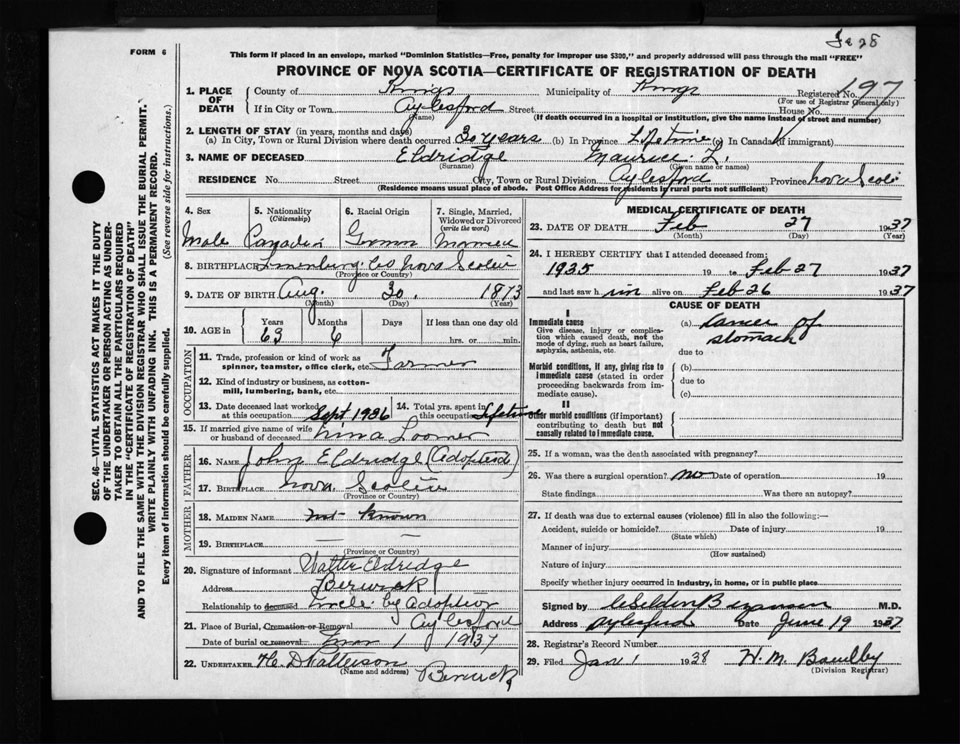 Fe 28
FORM 6
This form if placed in an envelope, marked "Dominion Statistics—Free, penalty for improper use $300," and properly addressed will pass through the mail "FREE"
PROVINCE OF NOVA SCOTIA—CERTIFICATE OF REGISTRATION OF DEATH
1. PLACE OF DEATH
County of Kings Municipality of Kings Registered No. 197
(For use of Registrar General only)
If in City or Town Aylesford Street House No.
(Name) (If death occurred in a hospital or institution, give the name instead of street and number)
2. LENGTH OF STAY (in years, months and days)
(a) In City, Town or Rural Division where death occurred 30 years (b) In Province Lifetime (c) In Canada (if immigrant)
3. NAME OF DECEASED Eldridge Maurice L.
(Surname) (Given name or names)
RESIDENCE No. Street City, Town or Rural Division Aylesford Province Nova Scotia
(Residence means usual place of abode. Post Office Address for residents in rural parts not sufficient)
4. Sex 5. Nationality (Citizenship) 6. Racial Origin 7. Single, Married, Widowed or Divorced (write the word)
Male Canadian German Married
8. BIRTHPLACE Lunenburg Co Nova Scotia
(Province or Country)
9. DATE OF BIRTH Aug. 30. 1873
(Month) (Day) (Year)
10. AGE in Years Months Days If less than one day old
63 6 hrs. or min.
OCCUPATION
11. Trade, profession or kind of work as spinner, teamster, office clerk, etc. Farmer
12. Kind of industry or business, as cotton-mill, lumbering, bank, etc.
13. Date deceased last worked at this occupation Sept 1936 14. Total yrs. spent in this occupation Lifetime
15. If married give name of wife or husband of deceased Nina Loomer
FATHER
16. NAME John Eldridge (Adopted)
17. BIRTHPLACE Nova Scotia
(Province or Country)
MOTHER
18. MAIDEN NAME not known
19. BIRTHPLACE — —
(Province or Country)
20. Signature of informant Walter Eldridge
Address Berwick
Relationship to deceased Uncle by Adoption
21. Place of Burial, Cremation or Removal Aylesford
Date of burial or removal Mar 1 1937
22. UNDERTAKER
(Name and address) Berwick
MEDICAL CERTIFICATE OF DEATH
23. DATE OF DEATH Feb 27 1937
(Month) (Day) (Year)
24. I HEREBY CERTIFY that I attended deceased from:
1935 19 to Feb 27 1937
and last saw h im alive on Feb 26 1937
CAUSE OF DEATH
I
Immediate cause (a) Cancer of stomach
Give disease, injury or complication which caused death, not the mode of dying, such as heart failure, asphyxia, asthenia, etc.
due to
Morbid conditions, if any, giving rise to immediate cause (stated in order proceeding backwards from immediate cause).
(b)
due to
(c)
II
Other morbid conditions (if important) contributing to death but not causally related to immediate cause.
25. If a woman, was the death associated with pregnancy?
26. Was there a surgical operation? no Date of operation 19
State findings Was there an autopsy?
27. If death was due to external causes (violence) fill in also the following:—
Accident, suicide or homicide? Date of injury 19
(State which)
Manner of injury
(How sustained)
Nature of injury
Specify whether injury occurred in industry, in home, or in public place
Signed by M.D.
Address Aylesford Date June 19 1937
28. Registrar's Record Number
29. Filed Jan 1 1938 H. M.
(Division Registrar)
SEC. 46—VITAL STATISTICS ACT MAKES IT THE DUTY
OF THE UNDERTAKER OR PERSON ACTING AS UNDER-
TAKER TO OBTAIN ALL THE PARTICULARS REQUIRED
IN THE "CERTIFICATE OF REGISTRATION OF DEATH"
AND TO FILE THE SAME WITH THE DIVISION REGISTRAR WHO SHALL ISSUE THE BURIAL PERMIT.
WRITE PLAINLY WITH UNFADING INK. THIS IS A PERMANENT RECORD.
Every item of information should be carefully supplied. (See reverse side for instructions.)